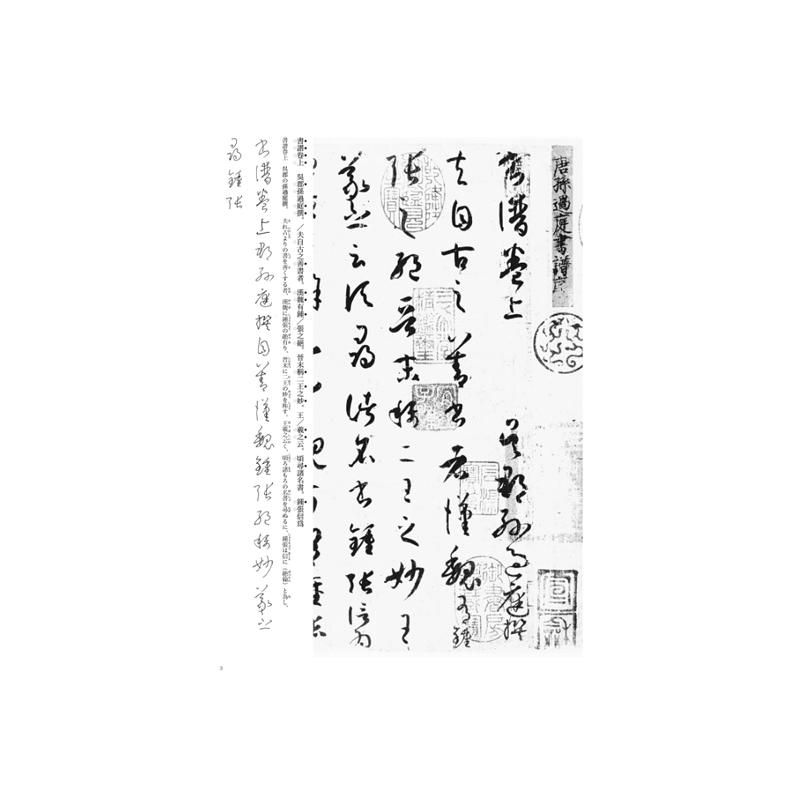 唐孫過庭書譜序
書譜卷上　吳郡孫過庭撰
夫自古之善書者漢魏有鍾
張之絕晉末稱二王之妙王
羲之云頃尋諸名書鍾張信為
書譜卷上　吳郡孫過庭撰。／夫自古之善書者、漢魏有鍾／張之絕、晉末稱二王之妙。王／羲之云、頃尋諸名書、鍾張信爲
書譜巻上　呉郡の孫過庭撰。　夫れ古よりの書を善くする者、漢魏に鍾張の絶有り、晋末に二王の妙を称す。王羲之云く、頃ろ諸もろの名書を尋ぬるに、鍾張は信に（絶倫）と為し、
書譜卷上郡孫庭撰自善漢魏鍾張絕稱妙羲之
尋鍾張
3